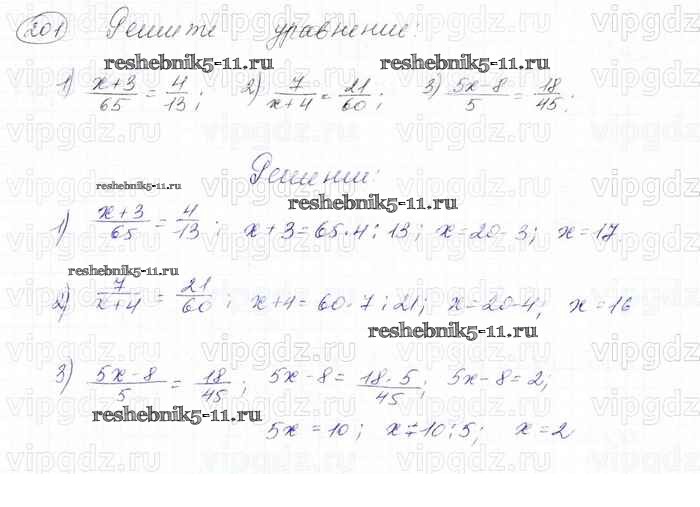 201 Решите уравнение:
reshebnik5-11.ru reshebnik5-11.ru
1) (x+3)/65 = 4/13; 2) 7/(x+4) = 21/60; 3) (5x-8)/5 = 18/45.
Решение:
reshebnik5-11.ru
reshebnik5-11.ru
1) (x+3)/65 = 4/13; x+3=65·4:13; x=20-3; x=17
reshebnik5-11.ru
2) 7/(x+4) = 21/60; x+4=60·7:21; x=20-4; x=16
reshebnik5-11.ru
3) (5x-8)/5 = 18/45; 5x-8= (18·5)/45; 5x-8=2;
reshebnik5-11.ru
5x=10; x=10:5; x=2
vipgdz.ru